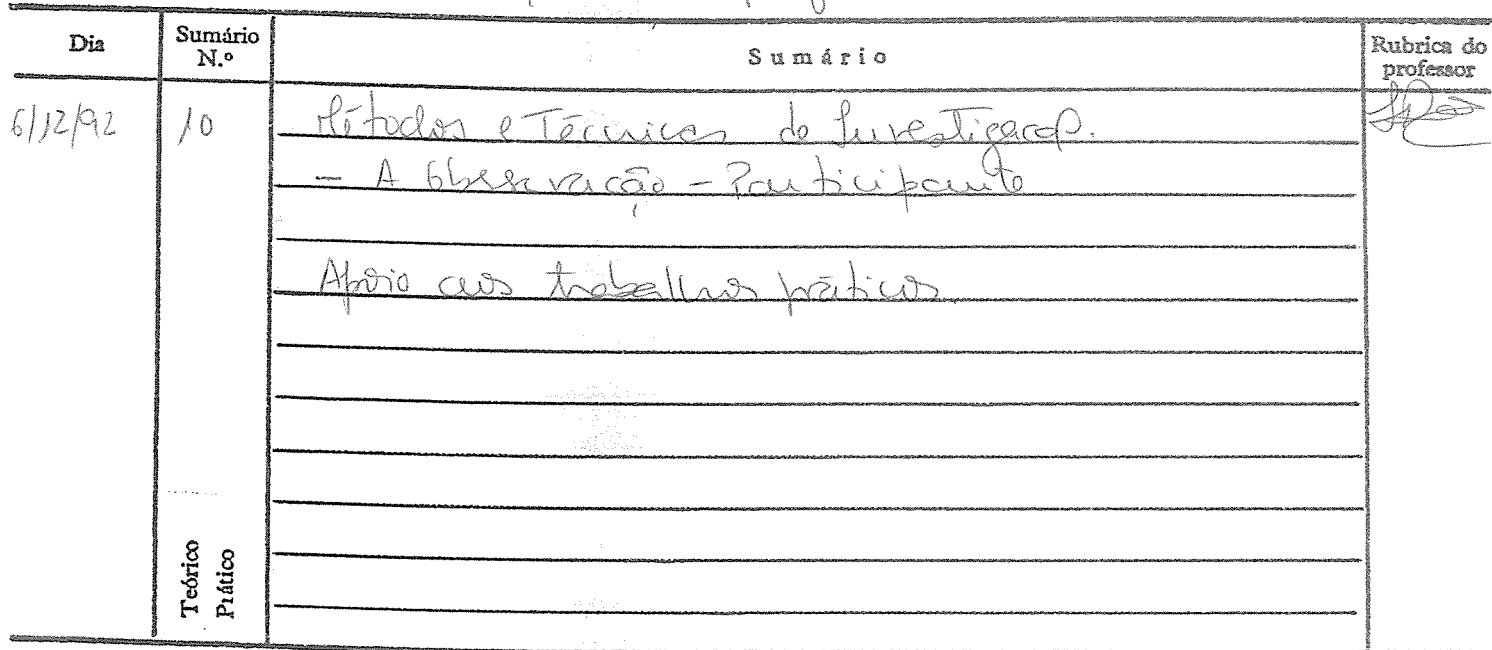 Dia
Sumário N.º
Sumário
Rubrica do professor
6/12/92
10
Métodos e Técnicas de Investigação.
- A Observação - Participante
Apoio aos trabalhos práticos
Teórico
Prático